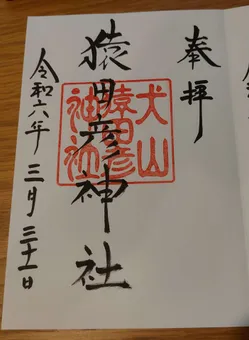 奉拝
猿田彦神社
犬山
猿田彦
神社
令和六年 三月 三十一日